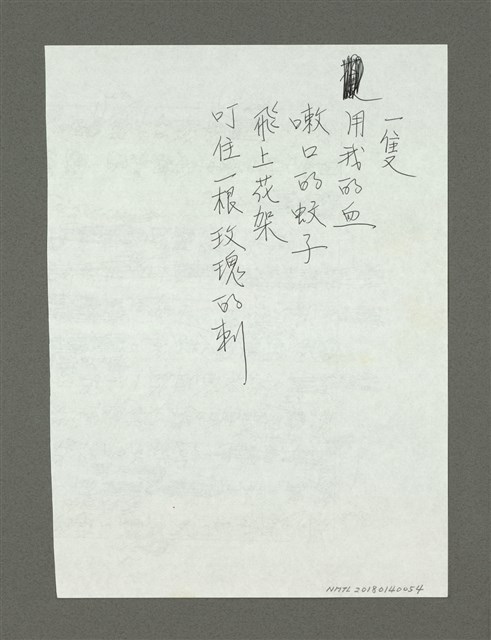 一隻
用我的血
嗽口的蚊子
飛上花架
叮住一根玫瑰的刺
NMTL 20180140054